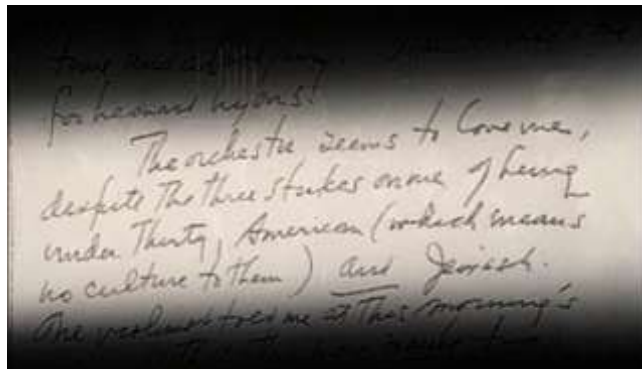 for Leonard Lyons!
The orchestra seems to love me,
despite the three strikes on me of being
under thirty, American (which means
no culture to them) and Jewish.
One violinist told me at this morning's